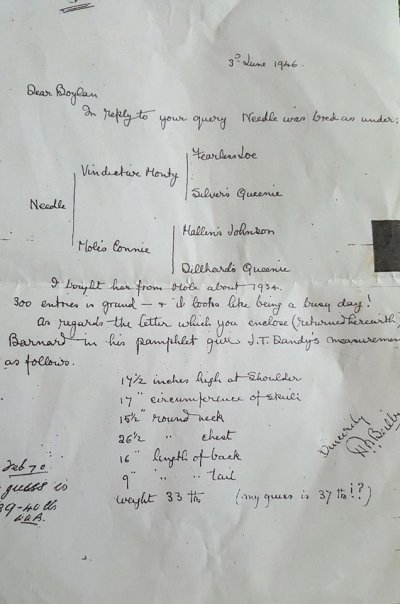 3d June 1946.
Dear Boylan
In reply to your query Needle was bred as under:
Fearless Joe
Vindictive Monty
Silver's Queenie
Needle
Mallen's Johnson
Mole's Connie
Dillhard's Queenie
I bought her from Mole about 1934.
300 entries is grand — & it looks like being a busy day!
As regards the letter which you enclose (returned herewith)
Barnard in his pamphlet gives J.T. Dandy's measuremen
as follows.
17½ inches high at shoulder
17" circumference of skull
15½" round neck
26½ " " chest
16" length of back
9" " " tail
weight 33 lbs (my guess is 37 lbs!?)
Sincerely
Feb 70
guess is
39-40 lbs